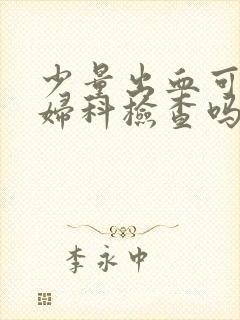 少量出血可
婦科檢查吗
李永中